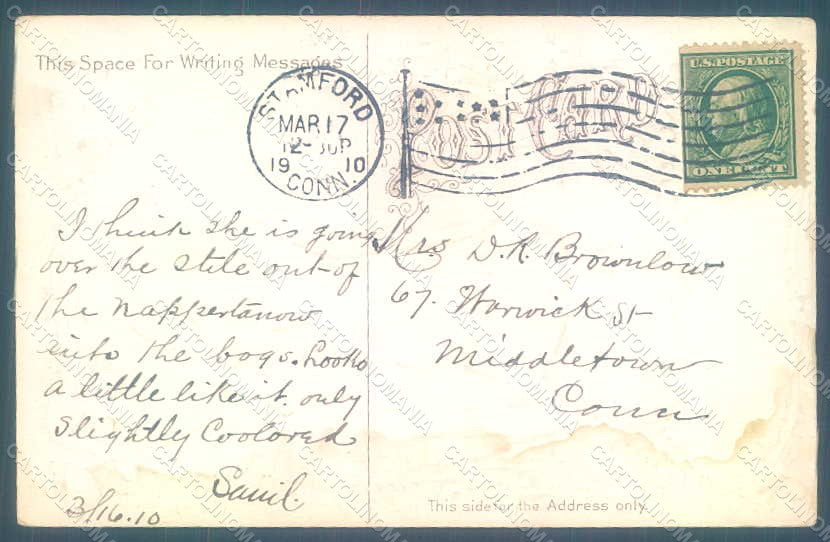 This Space For Writing Messages
POST CARD
STAMFORD
MAR 17
12-
19 10
CONN.
U.S. POSTAGE
ONE CENT
I think she is going
over the stile out of
the
into the bogs. Looks
a little like it. only
Slightly Coolored
3/16.10
Mrs D.R. Brownlow
67. Warwick St
Middletown
Conn
This side for the Address only.
CARTOLINOMANIA